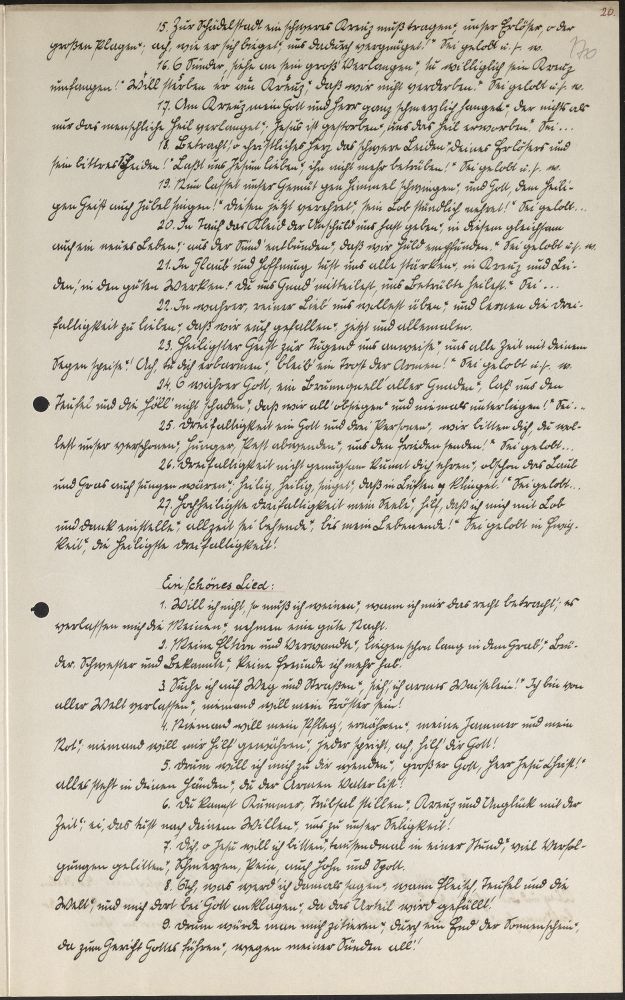 20.
170
15. Zur Schädelstadt ein schweres Kreuz muß tragen", unser Erlöser, o der
großen Plagen", ach, wie er sich bieget", uns dadurch vergnüget!" Sei gelobt u. s. w.
16. O Sünder, siehe an sein groß' Verlangen", tu williglich sein Kreuz
umfangen!" Well sterben er am Kreuz", daß wir nicht verderben." Sei gelobt u. s. w.
17. Am Kreuz mein Gott und Herr ganz schmerzlich hanget", der nichts als
nur das menschliche Heil verlanget", Jesus ist gestorben", uns das Heil erworben." Sei...
18. Betracht', o christliches Herz das schwere Leiden" deines Erlösers und
sein bittres Scheiden!" Laßt uns Jesum lieben", ihn nicht mehr betrüben!" Sei gelobt u. s. w.
19. Nun lasset unser Gemüt gen Himmel schwingen", und Gott, dem heili-
gen Geist auch Jubel singen!" Diesen jetzt verehret", sein Lob stündlich mehret!" Sei gelobt...
20. In Tauf das Kleid der Unschuld uns hast geben", in diesem gleichsam
auch ein neues Leben", aus der Sünd' entbunden", daß wir Huld empfunden." Sei gelobt u. s. w.
21. In Glaub' und Hoffnung tust uns alle stärken", in Kreuz und Lei-
den, in den guten Werken." Du uns Gnad' mitteilest", uns Betrübte heilest." Sei...
22. In wahrer, reiner Lieb' uns wollest üben", und lernen die Drei-
faltigkeit zu lieben", daß wir auch gefallen", jetzt und allemalen.
23. Heiligster Geist zur Tugend uns anweise", uns alle Zeit mit deinem
Segen speise"! Ach, tu dich erbarmen", bleib' ein Trost der Armen!" Sei gelobt u. s. w.
24. O wahrer Gott, ein Brunnquell aller Gnaden", laß uns den
Teufel und die Höll' nicht schaden", daß wir all' obsiegen" und niemals unterliegen!" Sei...
25. Dreifaltigkeit ein Gott und drei Personen", wir bitten dich, du wol-
lest unser verschonen", Hunger, Pest abwenden", uns den Frieden senden!" Sei gelobt...
26. Dreifaltigkeit nicht genugsam kunnt dich ehren", obschon das Laub
und Gras auch Zungen wären", heilig, heilig, singet", daß in Lüften es klinget." Sei gelobt...
27. Hochheiligste Dreifaltigkeit mein Seele", hilf, daß ich mich mit Lob
und Dank einstelle", allzeit sei behende", bis mein Lebensende!" Sei gelobt in Ewig-
keit", die heiligste Dreifaltigkeit!
Ein schönes Lied:
1. Will ich nicht, so muß ich weinen", wann ich mir das recht betracht', es
verlassen mich die Meinen", nehmen eine gute Nacht.
2. Meine Eltern und Verwandte", liegen schon lang in dem Grab'," Brü-
der, Schwester und Bekannte", keine Freunde ich mehr hab'.
3. Suche ich auch Weg und Straßen", sich', ich armes Waiselein!" Ich bin von
aller Welt verlassen", niemand will mein Tröster sein!
4. Niemand will mein Pfleg', ernähren", meine Jammer und mein
Not", niemand will mir Hilf' gewähren", jeder spricht, ach, hilf' dir Gott!
5. Drum will ich mich zu dir wenden", großer Gott, Herr Jesu Christ!"
alles steht in deinen Händen", du der Armen Vater bist!
6. Du kannst Kummer, Trübsal stillen", Kreuz und Unglück mit der
Zeit", ei, das tust nach deinem Willen", uns zu unser Seligkeit!
7. Dich, o Jesu will ich bitten", tausendmal in einer Stund'," viel Verfol-
gungen gelitten", Schmerzen, Pein, auch Hohn und Spott.
8. Ach, was werd' ich damals sagen", wann Fleisch, Teufel und die
Welt", und mich dort bei Gott anklagen", da das Urteil wird gefällt!
9. Drum würde man mich zitieren", durch ein End' der Sonnenschein",
da zum Gericht Gottes führen", wegen meiner Sünden all'!